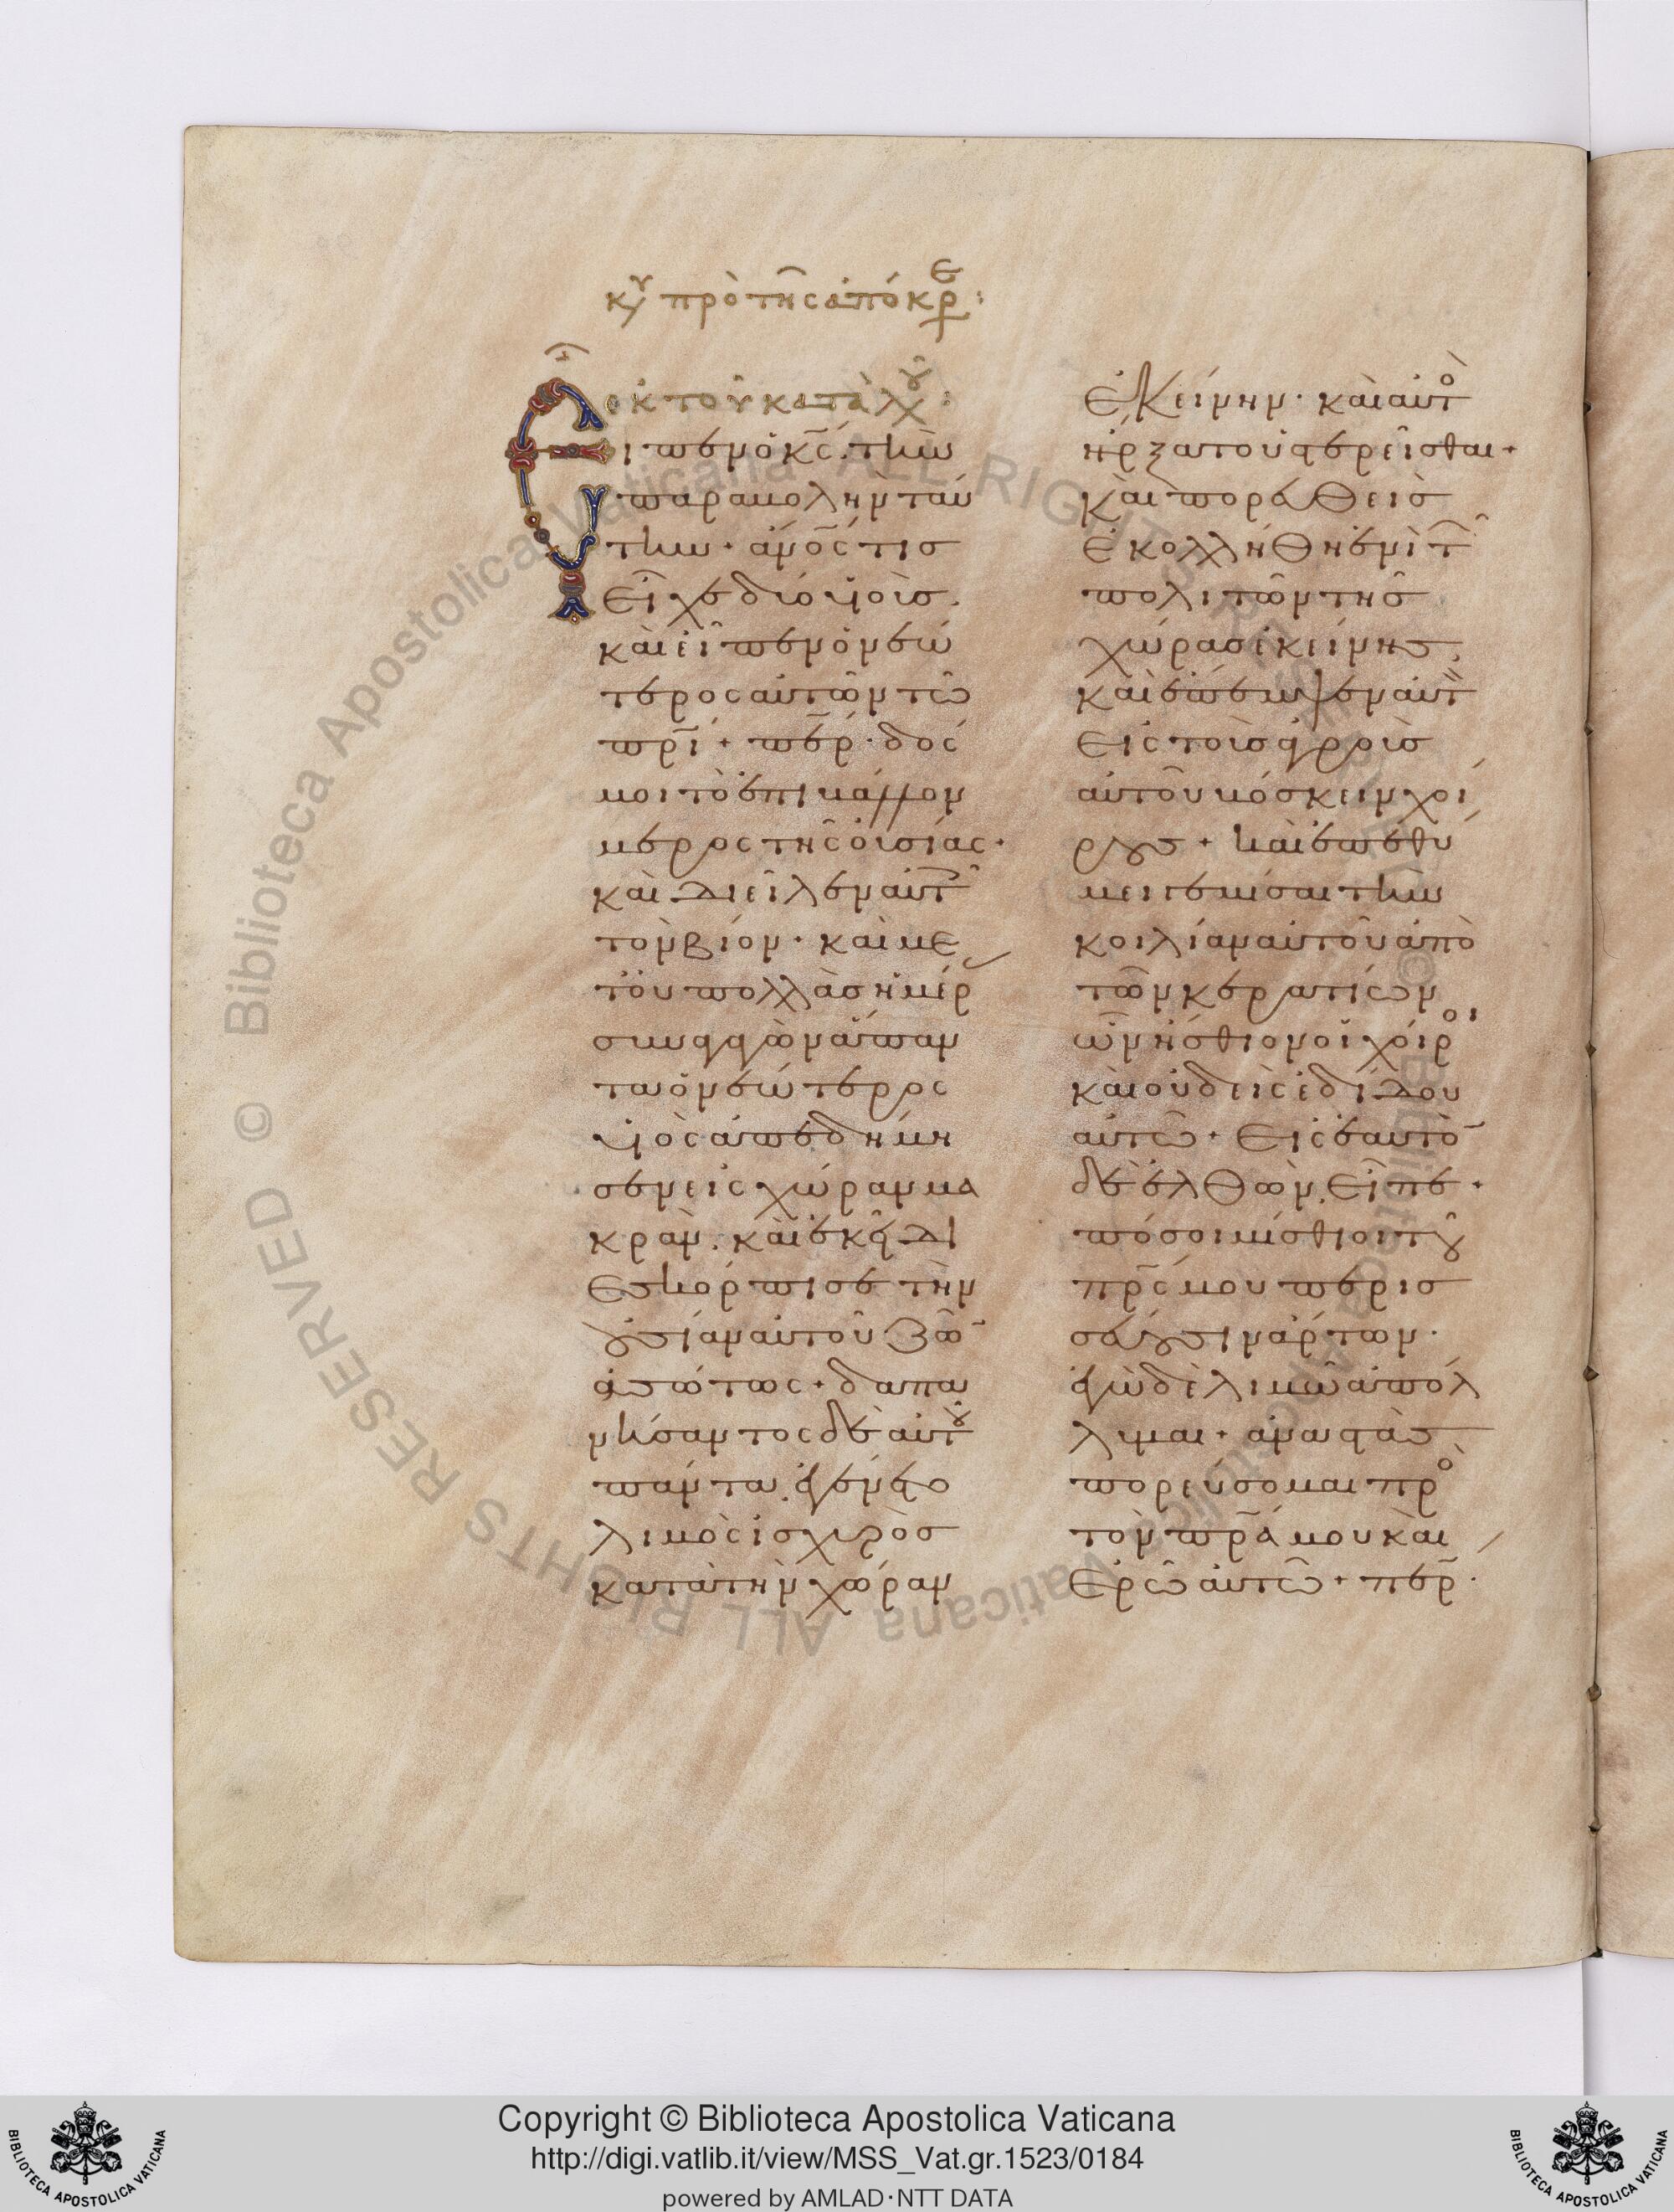 κυ πρὸ τῆς ἀπόκρε:
ἐκ τοῦ κατὰ λουκ:
Εἶπεν ὁ κς τὴν
παραβολὴν ταύ
την· ἄνος τις
εἶχε δύο υἱούς.
καὶ εἶπεν ὁ νεώ
τερος αὐτῶν τῶ
πρι· περ· δός
μοι τὸ ἐπιβάλλον
μέρος τῆς οὐσίας·
καὶ διεῖλεν αὐτ
τὸν βίον· καὶ με
τ οὐ πολλὰς ἡμέρ
συναγαγὼν ἅπαν
τα ὁ νεώτερος
υἱὸς ἀπεδήμη
σεν εἰς χώραν μα
κράν. καὶ ἐκεῖ δι
εσκόρπισε τὴν
οὐσίαν αὐτοῦ ζῶ
ἀσώτως· δαπα
νήσαντος δὲ αὐτου
πάντα. ἐγένετο
λιμὸς ἰσχυρὸς
κατὰ τὴν χώραν
ἐκείνην· καὶ αὐτο
ἤρξατο ὑστερεῖσθαι·
καὶ πορευθεὶς
ἐκολλήθη ἑνὶ τ
πολιτῶν τῆς
χώρας ἐκείνης.
καὶ ἔπεμψεν αὐτ
εἰς τοὺς ἀγροὺς
αὐτοῦ βόσκειν χοί
ρους· καὶ ἐπεθύ
μει γεμίσαι τὴν
κοιλίαν αὐτοῦ ἀπὸ
τῶν κερατίων
ὧν ἤσθιον οἱ χοῖροι
καὶ οὐδεὶς ἐδίδου
αὐτῶ· εἰς ἑαυτὸ
δὲ ἐλθὼν. εἶπε·
πόσοι μίσθιοι του
πρς μου περισ
σεύουσιν ἄρτων·
ἐγὼ δὲ λιμῶ ἀπόλ
λυμαι· ἀναστὰς
πορεύσομαι προ
τὸν πρα μου καὶ
ἐρῶ αὐτῶ· περ·
© Biblioteca Apostolica Vaticana ALL RIGHTS RESERVED
© Biblioteca Apostolica Vaticana ALL RIGHTS RESERVED
Copyright © Biblioteca Apostolica Vaticana
http://digi.vatlib.it/view/MSS_Vat.gr.1523/0184
powered by AMLAD·NTT DATA
BIBLIOTECA APOSTOLICA VATICANA
BIBLIOTECA APOSTOLICA VATICANA